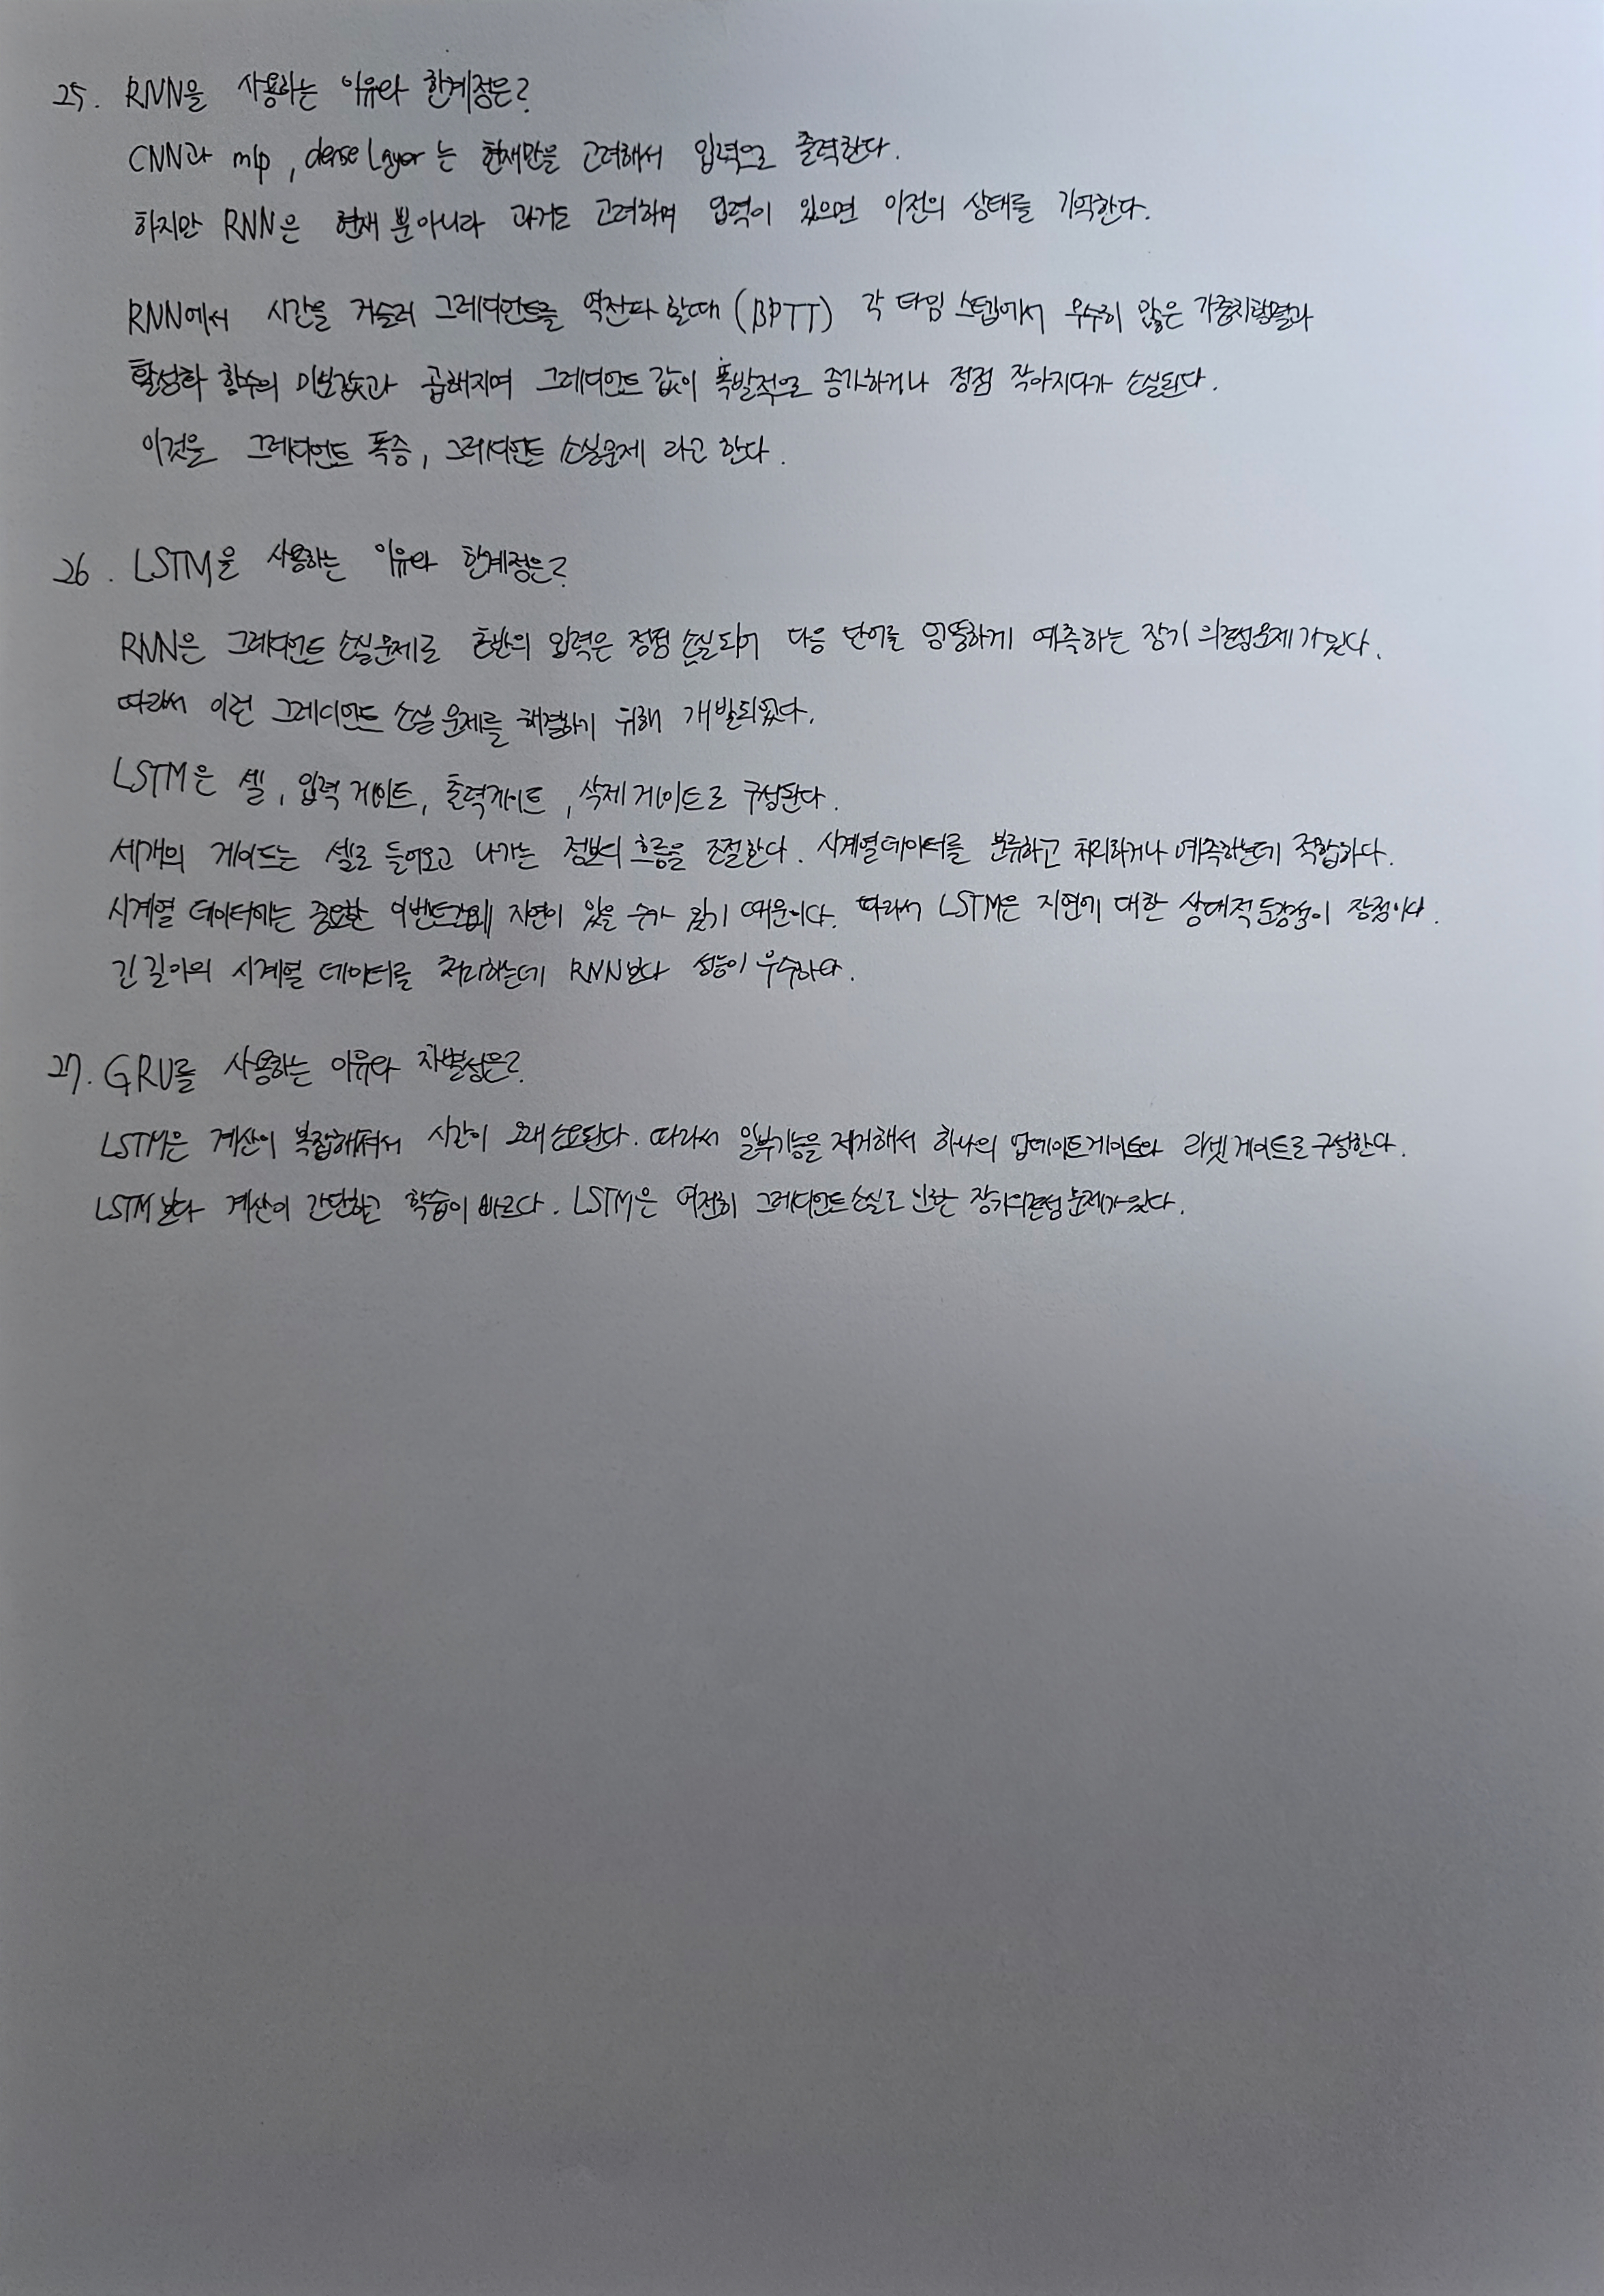 25. RNN을 사용하는 이유와 한계점은?
CNN과 mlp, dense Layer는 현재만을 고려해서 입력으로 출력한다.
하지만 RNN은 현재 뿐아니라 과거도 고려하며 입력이 있으면 이전의 상태를 기억한다.
RNN에서 시간을 거슬러 그레디언트를 역전파 할때 (BPTT) 각 타임 스텝에서 무수히 많은 가중치행렬과
활성화 함수의 미분값과 곱해지며 그레디언트 값이 폭발적으로 증가하거나 점점 작아지다가 소실된다.
이것을 그레디언트 폭증, 그레디언트 소실문제 라고 한다.
26. LSTM을 사용하는 이유와 한계점은?
RNN은 그레디언트 소실문제로 초반의 입력은 점점 손실되어 다음 단어를 엉뚱하게 예측하는 장기 의존성문제가있다.
따라서 이런 그레디언트 소실 문제를 해결하기 위해 개발되었다.
LSTM은 셀, 입력 게이트, 출력게이트, 삭제 게이트로 구성된다.
세개의 게이트는 셀로 들어오고 나가는 정보의 흐름을 조절한다. 시계열데이터를 분류하고 처리하거나 예측하는데 적합하다.
시계열 데이터에는 중요한 이벤트간에 지연이 있을 수가 있기 때문이다. 따라서 LSTM은 지연에 대한 상대적 둔감성이 장점이다.
긴 길이의 시계열 데이터를 처리하는데 RNN보다 성능이 우수하다.
27. GRU를 사용하는 이유와 차별성은?
LSTM은 계산이 복잡해져서 시간이 오래 소요된다. 따라서 일부기능을 제거해서 하나의 업데이트게이트와 리셋 게이트로 구성한다.
LSTM 보다 계산이 간단하고 학습이 빠르다. LSTM은 여전히 그레디언트 소실로 인한 장기의존성 문제가있다.